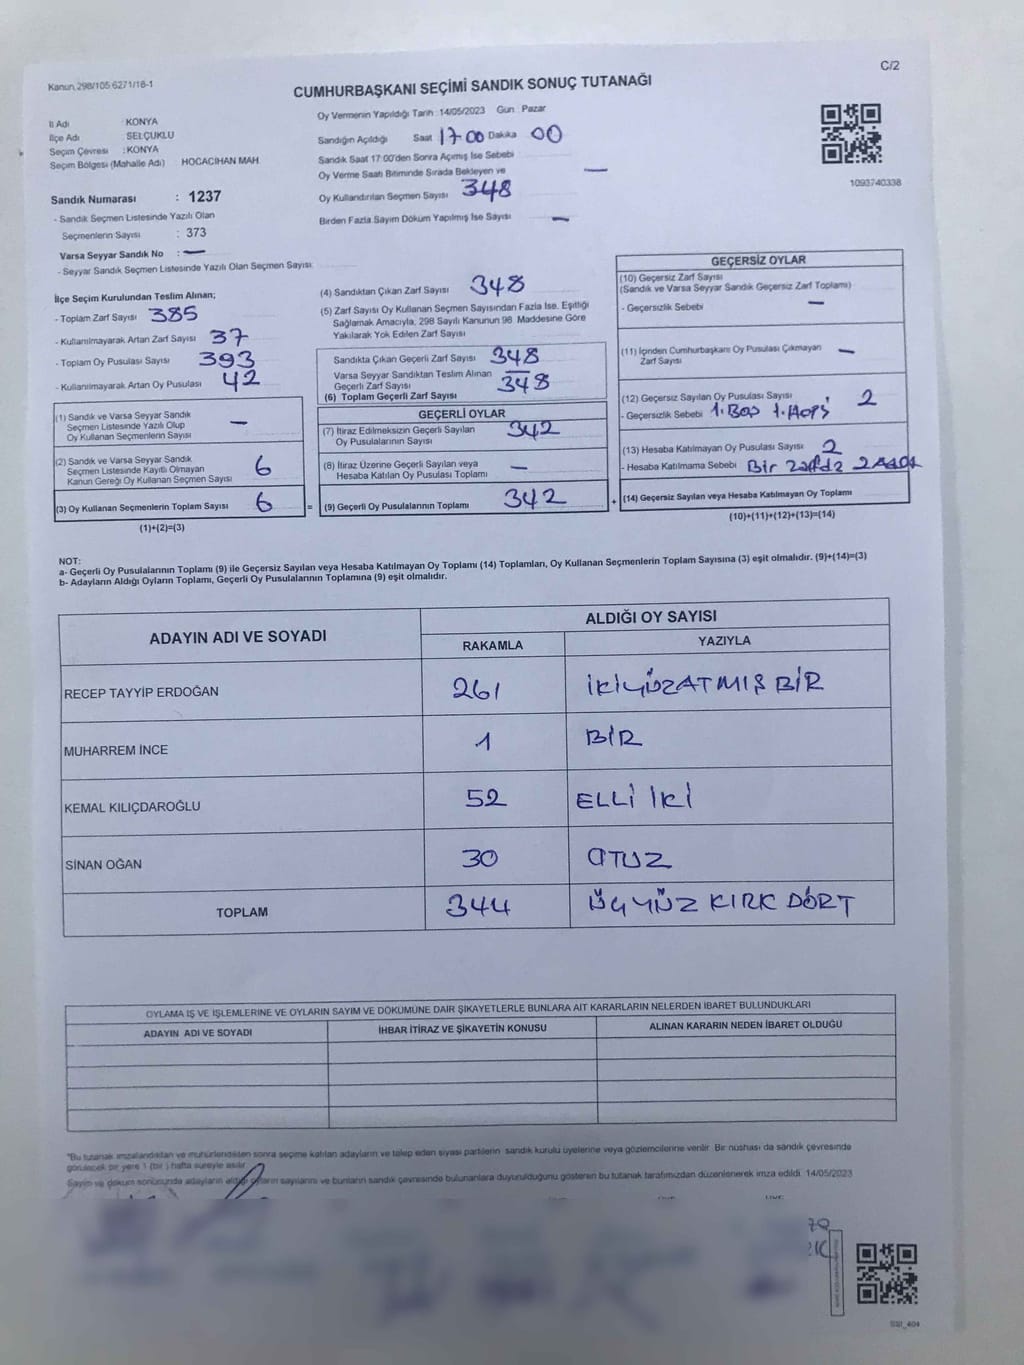 C/2
Kanun.298/105 6271/16-1
CUMHURBAŞKANI SEÇİMİ SANDIK SONUÇ TUTANAĞI
İl Adı : KONYA
İlçe Adı : SELÇUKLU
Seçim Çevresi : KONYA
Seçim Bölgesi (Mahalle Adı) HOCACİHAN MAH.
Sandık Numarası : 1237
- Sandık Seçmen Listesinde Yazılı Olan
Seçmenlerin Sayısı : 373
Varsa Seyyar Sandık No : —
- Seyyar Sandık Seçmen Listesinde Yazılı Olan Seçmen Sayısı:
Oy Vermenin Yapıldığı Tarih : 14/05/2023 Gün : Pazar
Sandığın Açıldığı Saat 17.00 Dakika 00
Sandık Saat 17:00'den Sonra Açımış İse Sebebi
Oy Verme Saati Bitiminde Sırada Bekleyen ve —
Oy Kullandırılan Seçmen Sayısı 348
Birden Fazla Sayım Döküm Yapılmış İse Sayısı —
1093740338
İlçe Seçim Kurulundan Teslim Alınan;
- Toplam Zarf Sayısı 385
- Kullanılmayarak Artan Zarf Sayısı 37
- Toplam Oy Pusulası Sayısı 393
- Kullanılmayarak Artan Oy Pusulası 42
(1) Sandık ve Varsa Seyyar Sandık
Seçmen Listesinde Yazılı Olup —
Oy Kullanan Seçmenlerin Sayısı
(2) Sandık ve Varsa Seyyar Sandık
Seçmen Listesinde Kayıtlı Olmayan 6
Kanun Gereği Oy Kullanan Seçmen Sayısı
(3) Oy Kullanan Seçmenlerin Toplam Sayısı 6
(1)+(2)=(3)
=
(4) Sandıktan Çıkan Zarf Sayısı 348
(5) Zarf Sayısı Oy Kullanan Seçmen Sayısından Fazla İse, Eşitliği
Sağlamak Amacıyla, 298 Sayılı Kanunun 98. Maddesine Göre
Yakılarak Yok Edilen Zarf Sayısı
Sandıkta Çıkan Geçerli Zarf Sayısı 348
Varsa Seyyar Sandıktan Teslim Alınan —
Geçerli Zarf Sayısı
(6) Toplam Geçerli Zarf Sayısı 348
GEÇERLİ OYLAR
(7) İtiraz Edilmeksizin Geçerli Sayılan 342
Oy Pusulalarının Sayısı
(8) İtiraz Üzerine Geçerli Sayılan veya —
Hesaba Katılan Oy Pusulası Toplamı
(9) Geçerli Oy Pusulalarının Toplamı 342
+
GEÇERSİZ OYLAR
(10) Geçersiz Zarf Sayısı
(Sandık ve Varsa Seyyar Sandık Geçersiz Zarf Toplamı)
- Geçersizlik Sebebi —
(11) İçinden Cumhurbaşkanı Oy Pusulası Çıkmayan —
Zarf Sayısı
(12) Geçersiz Sayılan Oy Pusulası Sayısı 2
- Geçersizlik Sebebi 1.Boş 1.
(13) Hesaba Katılmayan Oy Pusulası Sayısı 2
- Hesaba Katılmama Sebebi Bir 2
(14) Geçersiz Sayılan veya Hesaba Katılmayan Oy Toplamı
(10)+(11)+(12)+(13)=(14)
NOT:
a- Geçerli Oy Pusulalarının Toplamı (9) ile Geçersiz Sayılan veya Hesaba Katılmayan Oy Toplamı (14) Toplamları, Oy Kullanan Seçmenlerin Toplam Sayısına (3) eşit olmalıdır. (9)+(14)=(3)
b- Adayların Aldığı Oyların Toplamı, Geçerli Oy Pusulalarının Toplamına (9) eşit olmalıdır.
ADAYIN ADI VE SOYADI ALDIĞI OY SAYISI
RAKAMLA YAZIYLA
RECEP TAYYİP ERDOĞAN 261 İKİYÜZATMIŞ BİR
MUHARREM İNCE 1 BİR
KEMAL KILIÇDAROĞLU 52 ELLİ İKİ
SİNAN OĞAN 30 OTUZ
TOPLAM 344 ÜÇYÜZ KIRK DÖRT
OYLAMA İŞ VE İŞLEMLERİNE VE OYLARIN SAYIM VE DÖKÜMÜNE DAİR ŞİKAYETLERLE BUNLARA AİT KARARLARIN NELERDEN İBARET BULUNDUKLARI
ADAYIN ADI VE SOYADI İHBAR İTİRAZ VE ŞİKAYETİN KONUSU ALINAN KARARIN NEDEN İBARET OLDUĞU
"Bu tutanak imzalandıktan ve mühürlendikten sonra seçime katılan adayların ve talep eden siyasi partilerin sandık kurulu üyelerine veya gözlemcilerine verilir. Bir nüshası da sandık çevresinde
görülecek bir yere 1 (bir ) hafta süreyle asılır.
Sayım ve döküm sonucunda adayların aldığı oyların sayılarını ve bunların sandık çevresinde bulunanlara duyurulduğunu gösteren bu tutanak tarafımızdan düzenlenerek imza edildi. 14/05/2023